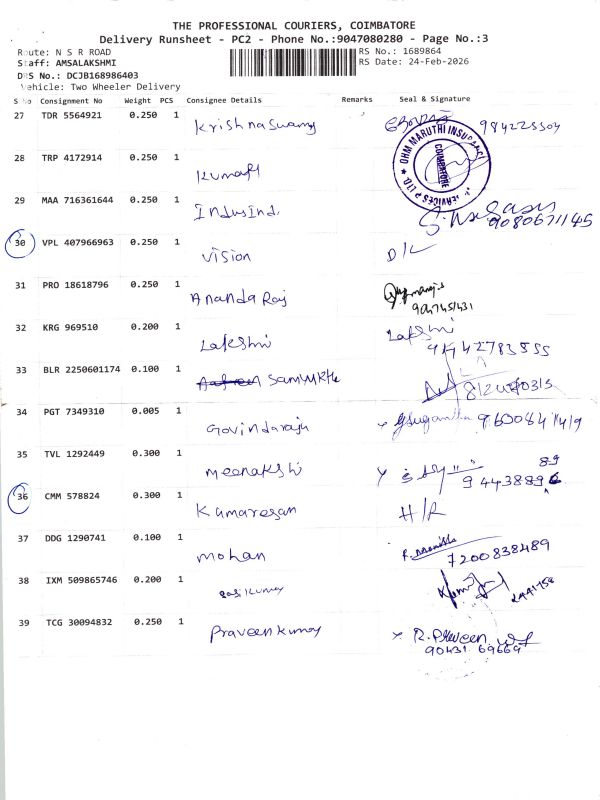 THE PROFESSIONAL COURIERS, COIMBATORE
Delivery Runsheet - PC2 - Phone No.:9047080280 - Page No.:3
Route: N S R ROAD
RS No.: 1689864
Staff: AMSALAKSHMI
RS Date: 24-Feb-2026
DRS No.: DCJB168986403
Vehicle: Two Wheeler Delivery
S No Consignment No Weight PCS Consignee Details Remarks Seal & Signature
27 TDR 5564921 0.250 1 Krishnaswamy
OHM MARUTHI INSURANCE SERVICES P LTD. COIMBATORE
28 TRP 4172914 0.250 1 Kumar
29 MAA 716361644 0.250 1 IndusInd
9080671145
30 VPL 407966963 0.250 1 Vision D/L
31 PRO 18618796 0.250 1 Ananda Raj
32 KRG 969510 0.200 1 Lakshmi Lakshmi
9442783555
33 BLR 2250601174 0.100 1 Samyuktha
34 PGT 7349310 0.005 1 Govindaraju
35 TVL 1292449 0.300 1 Meenakshi
36 CMM 578824 0.300 1 Kamaresan H/R
37 DDG 1290741 0.100 1 Mohan
7200838489
38 IXM 509865746 0.200 1 Sasikumar
39 TCG 30094832 0.250 1 Praveenkumar R. Praveen
90431 69669